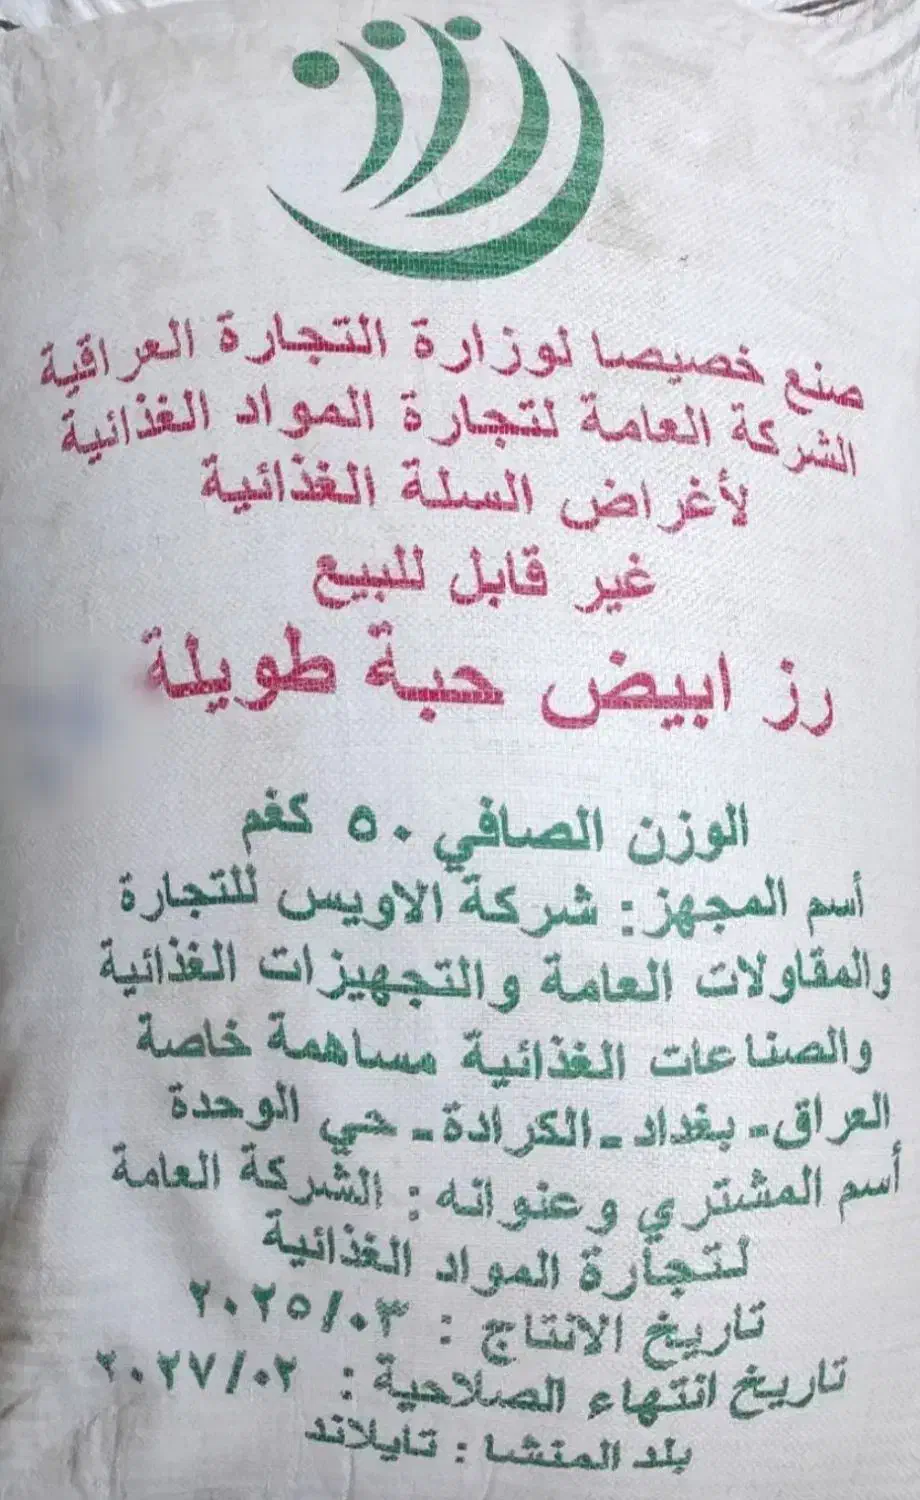 صنع خصيصا لوزارة التجارة العراقية
الشركة العامة لتجارة المواد الغذائية
لأغراض السلة الغذائية
غير قابل للبيع
رز ابيض حبة طويلة
الوزن الصافي ٥٠ كغم
أسم المجهز: شركة الاويس للتجارة
والمقاولات العامة والتجهيزات الغذائية
والصناعات الغذائية مساهمة خاصة
العراق- بغداد - الكرادة - حي الوحدة
أسم المشتري وعنوانه : الشركة العامة
لتجارة المواد الغذائية
تاريخ الانتاج : ٢٠٢٥/٠٣
تاريخ انتهاء الصلاحية : ٢٠٢٧/٠٢
بلد المنشا : تايلاند